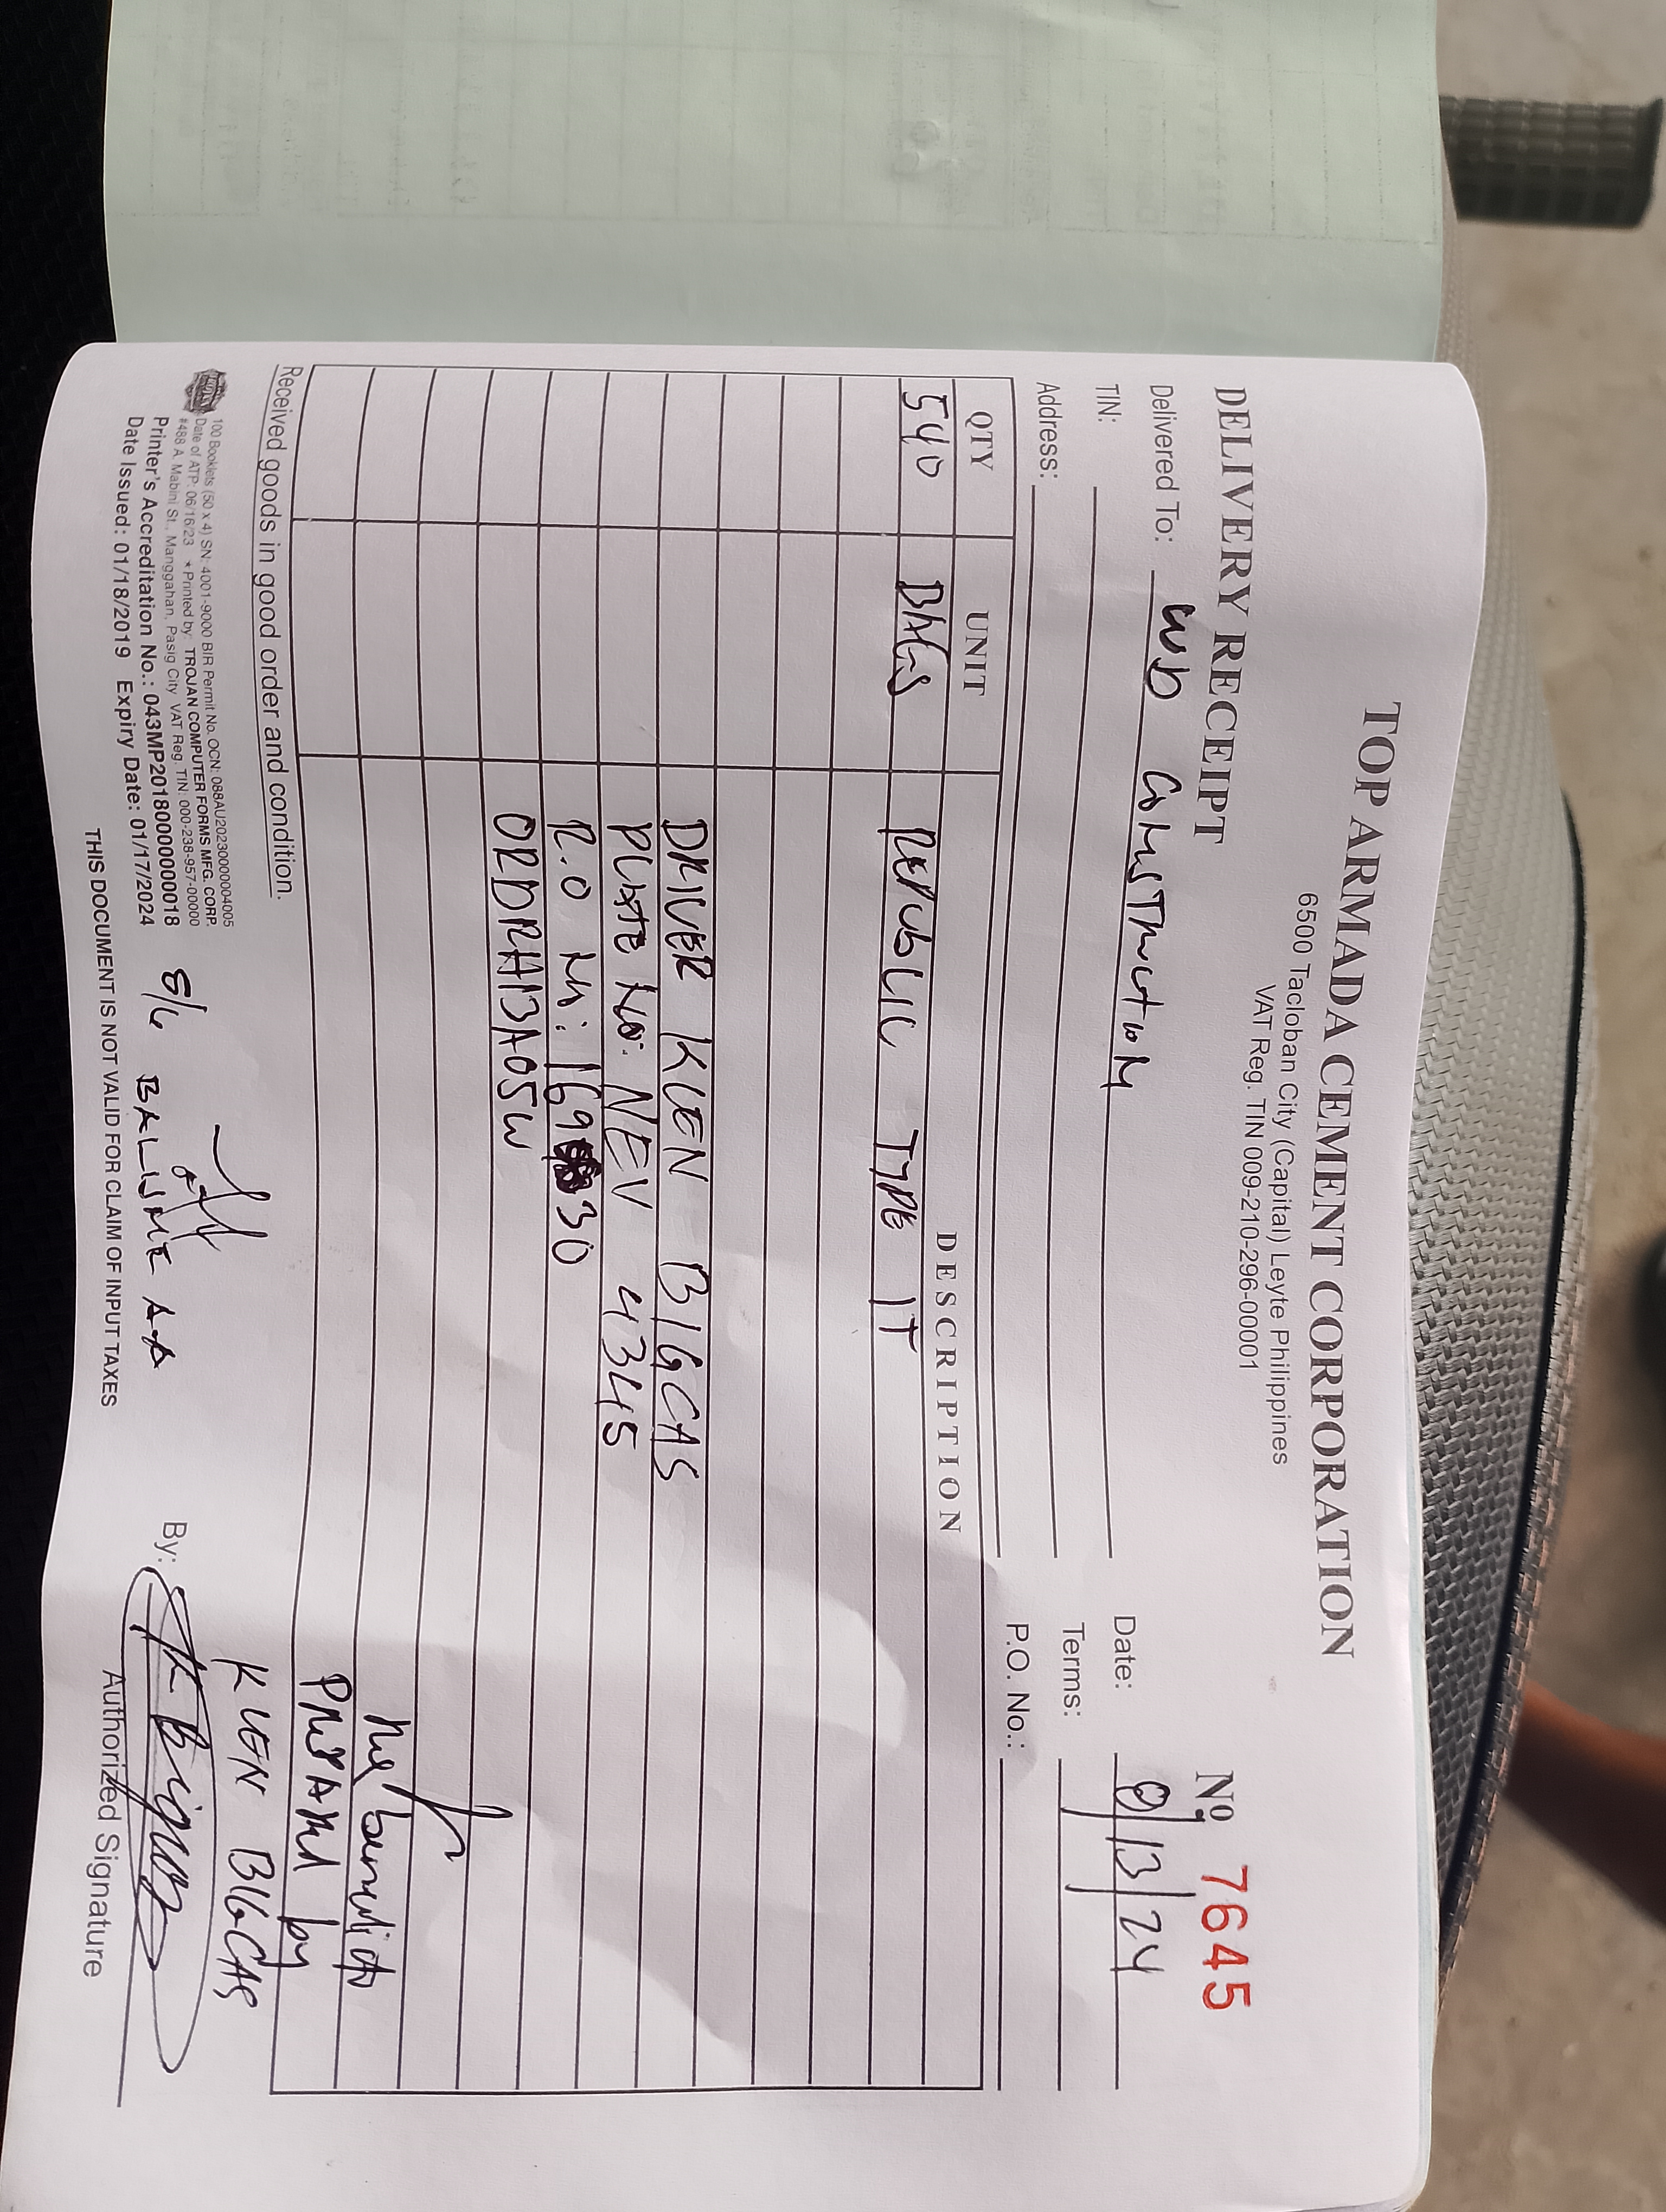 TOP ARMADA CEMENT CORPORATION
6500 Tacloban City (Capital) Leyte Philippines
VAT Reg. TIN 009-210-296-00001
DELIVERY RECEIPT
Nº 7645
Delivered To: WD CONSTRUCTION
Date: 9/13/24
TIN:
Terms:
Address:
P.O. No.:
QTY UNIT DESCRIPTION
540 BAGS REPUBLIC TYPE 1T
DRIVER KLEN BIGCAS
PLATE NO: NEV 4345
P.O NO: 169 30
ORDRH13A05W
PREPARED by
Received goods in good order and condition.
KLEN BIGCAS
100 Booklets (50 x 4) SN: 4001-9000 BIR Permit No. OCN: 088AU20230000004005
Date of ATP: 06/16/23 * Printed by: TROJAN COMPUTER FORMS MFG. CORP.
#488 A. Mabini St., Manggahan, Pasig City VAT Reg. TIN: 000-238-957-00000
Printer's Accreditation No.: 043MP20180000000018
Date Issued: 01/18/2019 Expiry Date: 01/17/2024
S/G
By:
Authorized Signature
THIS DOCUMENT IS NOT VALID FOR CLAIM OF INPUT TAXES